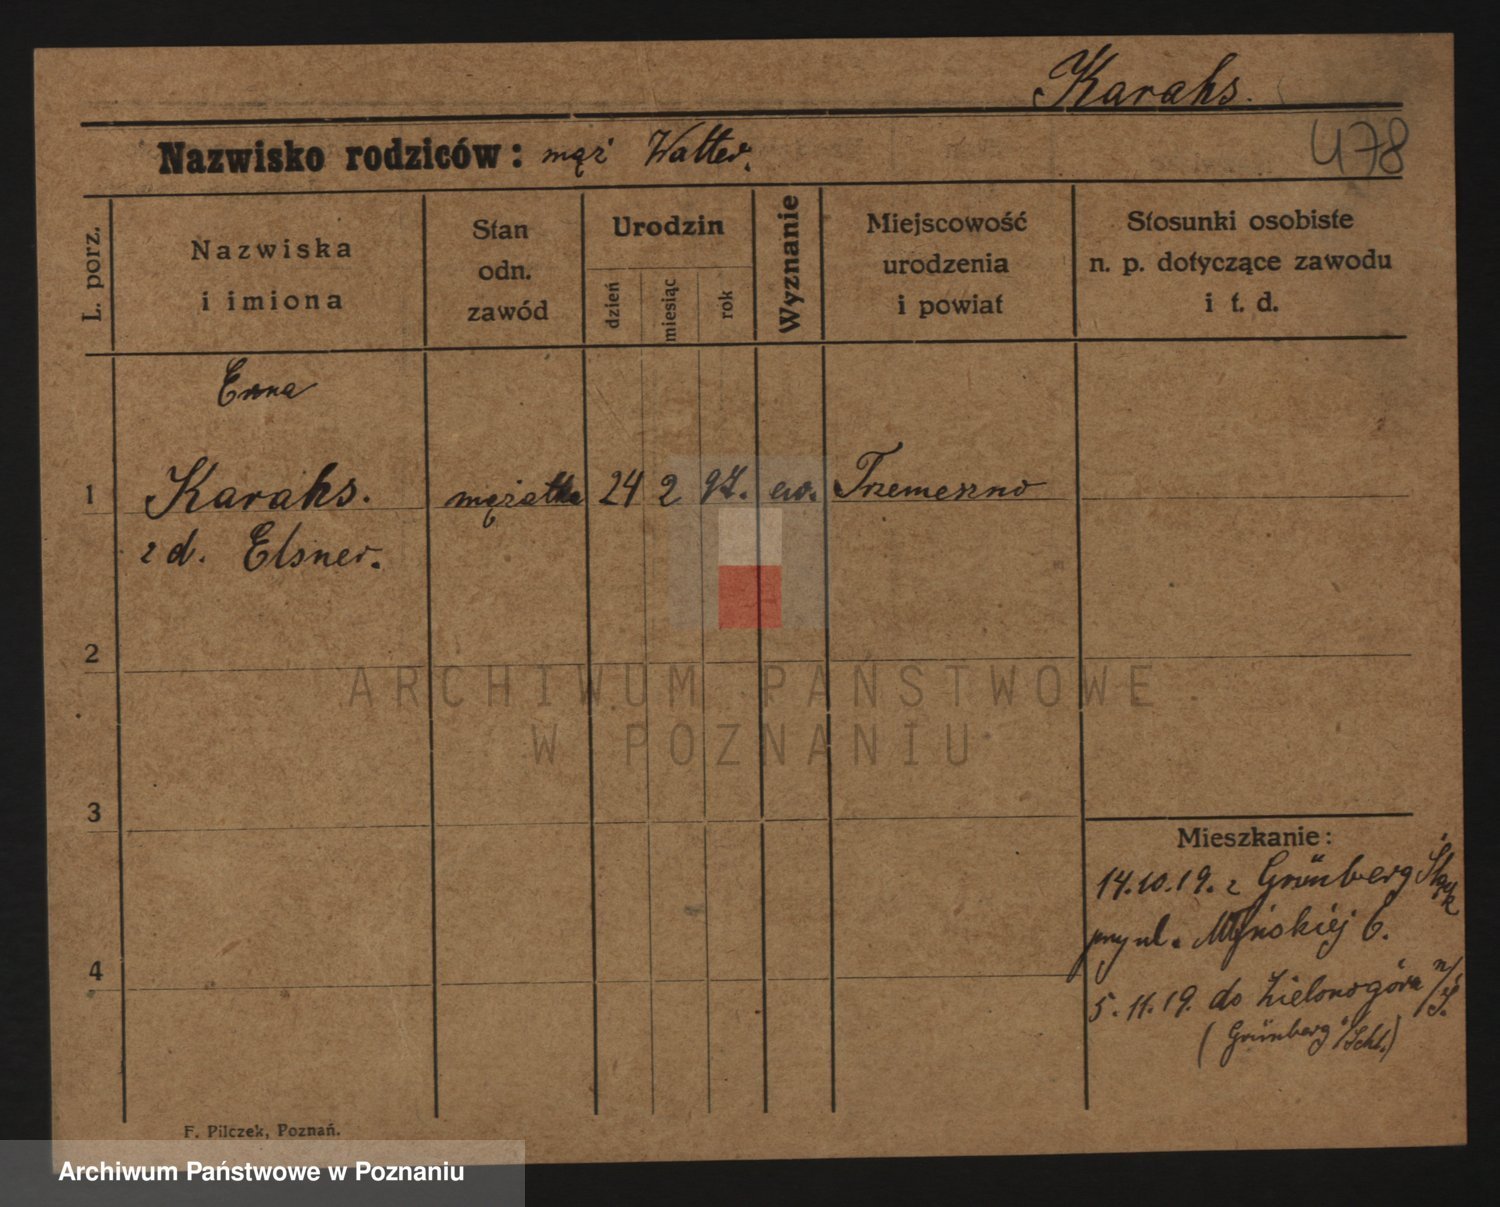 Karaks.
478
Nazwisko rodziców: mąż Walter.
L. porz.
Nazwiska
i imiona
Stan
odn.
zawód
Urodzin
dzień
miesiąc
rok
Wyznanie
Miejscowość
urodzenia
i powiat
Stosunki osobiste
n. p. dotyczące zawodu
i t. d.
Erna
1 Karaks. mężatka 24 2 97. ew. Trzemeszno
z d. Elsner.
2
ARCHIWUM PAŃSTWOWE
W POZNANIU
3
Mieszkanie:
14.10.19. z Grünberg Śląsk
przy ul. Młyńskiej 6.
4
5.11.19. do Zielonogóra n/Ś.
(Grünberg i/Schl.)
F. Pilczek, Poznań.
Archiwum Państwowe w Poznaniu